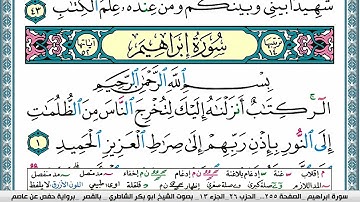 شَهِيدًۢا بَيْنِي وَبَيْنَكُمْ وَمَنْ عِندَهُۥ عِلْمُ ٱلْكِتَٰبِ ٤٣
سُورَةُ إِبْرَاهِيم
بِسْمِ ٱللَّهِ ٱلرَّحْمَٰنِ ٱلرَّحِيمِ
الٓر كِتَٰبٌ أَنزَلْنَٰهُ إِلَيْكَ لِتُخْرِجَ ٱلنَّاسَ مِنَ ٱلظُّلُمَٰتِ
إِلَى ٱلنُّورِ بِإِذْنِ رَبِّهِمْ إِلَىٰ صِرَٰطِ ٱلْعَزِيزِ ٱلْحَمِيدِ ١
سورة إبراهيم الصفحة ٢٥٥ ... الحزب ٢٦ الجزء ١٣ بصوت الشيخ أبو بكر الشاطري بالقصر برواية حفص عن عاصم